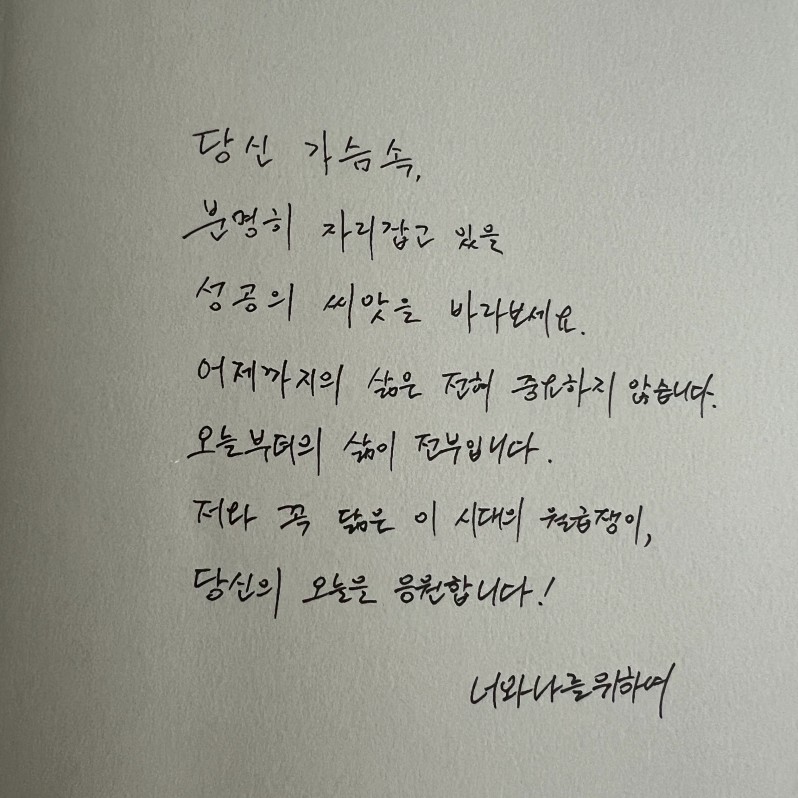 당신 가슴속,
분명히 자리잡고 있을
성공의 씨앗을 바라보세요.
어제까지의 삶은 전혀 중요하지 않습니다.
오늘부터의 삶이 전부입니다.
저와 꼭 닮은 이 시대의 월급쟁이,
당신의 오늘을 응원합니다!
너와나를위하여